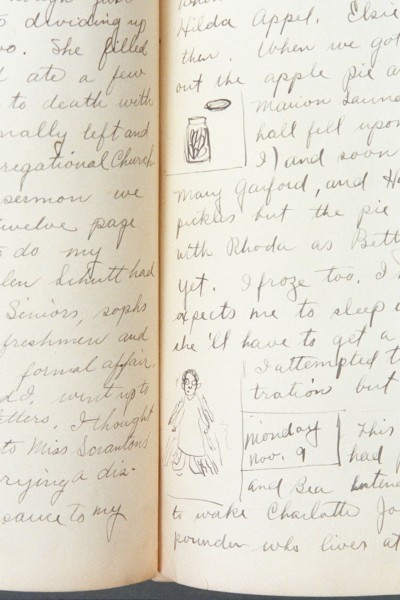 to dividing up
too. She filled
d ate a few
to death with
nally left and
regational Church
sermon we
twelve page
to do my
len Schutt had
Seniors, sophs
freshmen and
formal affair.
went up to
letters. I thought
to Miss Scranton's
rrying a dis-
sauce to my
Hilda Appel. Elsie
then. When we got
out the apple pie a
Marion
hall fell upon
I) and soon
Mary Gaiford, and H
pickles but the pie
with Rhoda as Bett
yet. I froze too. I
expects me to sleep
she'll have to get a
I attempted t
tration but
Monday
Nov. 9
This
had
and Bea
to wake Charlotte Jo
pounder who lives at